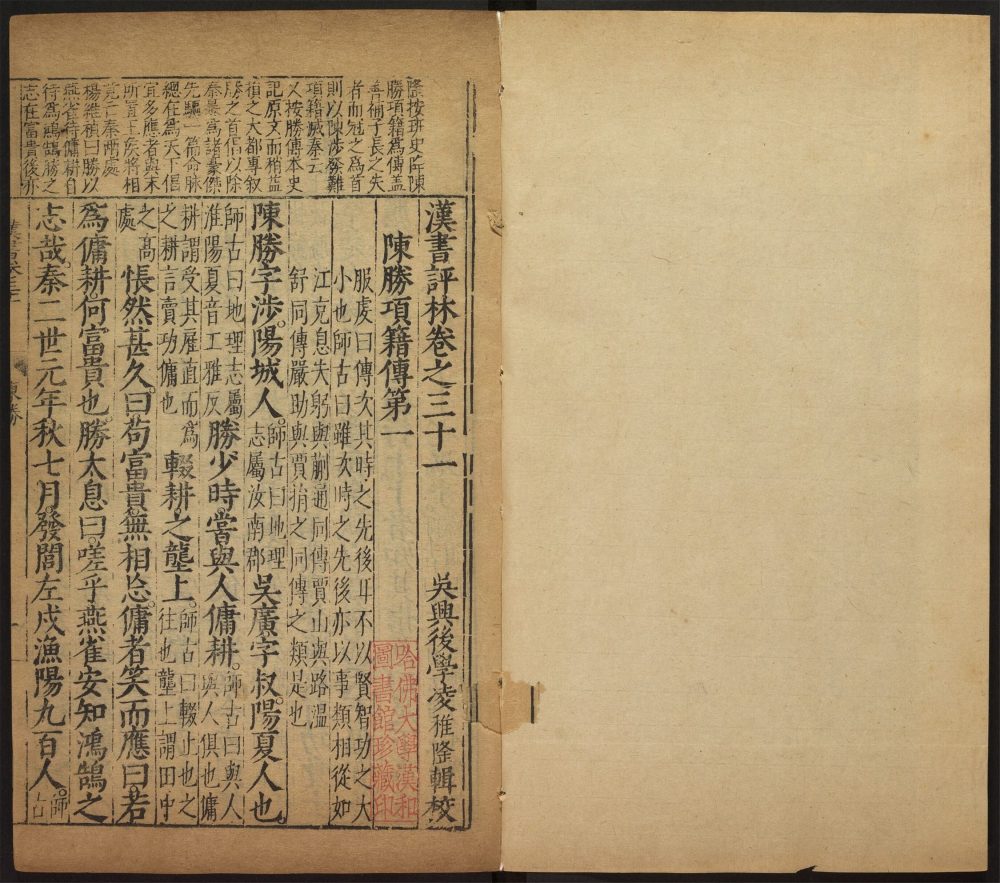 隆按班史陞陳
勝項籍爲傳蓋
善補子長之失
者而冠之爲首
則以陳涉發難
項籍滅秦云
又按勝傳本史
記原文而稍益
損之大都專叙
勝之首倡以除
秦暴爲諸豪傑
先驅一篇命脉
總在爲天下倡
宜多應者與末
所置王侯將相
竟亡秦兩處
楊維禎曰勝以
燕雀待傭耕自
待爲鴻鵠勝之
志在富貴後亦
漢書評林卷之三十一 吳興後學凌稚隆輯校
陳勝項籍傳第一
服虔曰傳次其時之先後耳不以賢智功之大
小也師古曰雖次時之先後亦以事類相從如
江充息夫躬與蒯通同傳賈山與路溫
舒同傳嚴助與賈捐之同傳之類是也
陳勝字涉陽城人師古曰地理志屬汝南郡吳廣字叔陽夏人也
師古曰地理志屬淮陽夏音工雅反勝少時嘗與人傭耕師古曰與人與人俱也傭
耕謂受其雇直而爲之耕言賣功傭也輟耕之壟上師古曰輟止也之往也壟上謂田中
之高處悵然甚久曰苟富貴無相忘傭者笑而應曰若
爲傭耕何富貴也勝太息曰嗟乎燕雀安知鴻鵠之
志哉秦二世元年秋七月發閭左戍漁陽九百人師古
哈佛大學漢和
圖書館珍藏印
陳勝
一